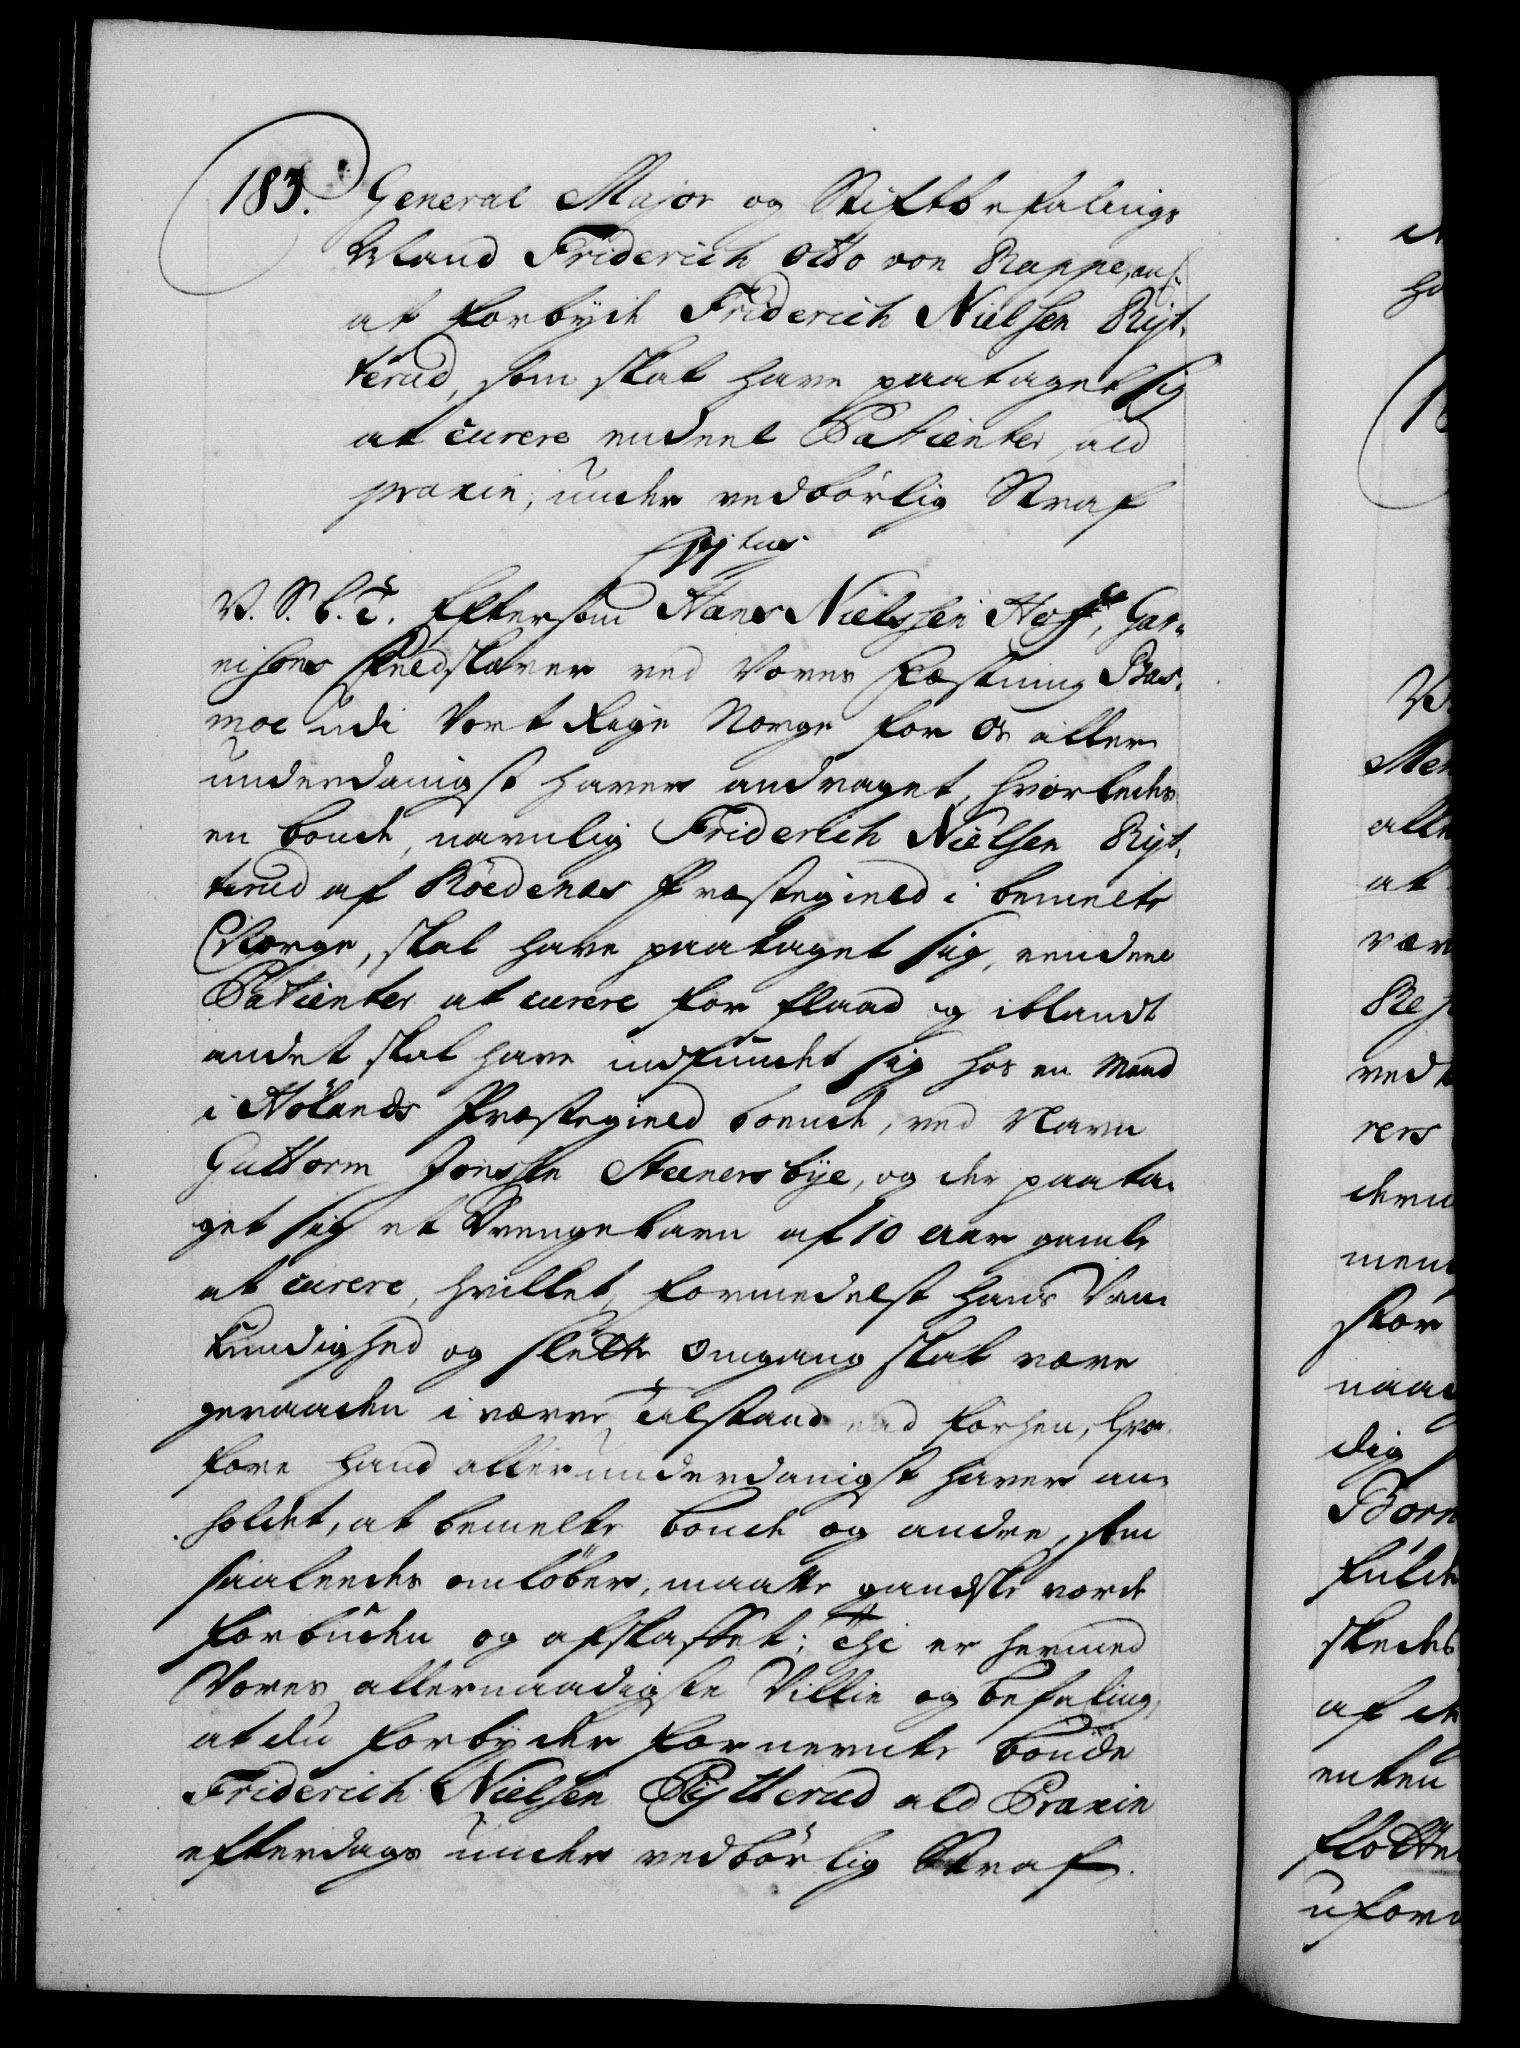 183. General Major og Stiftbefalings
Mand Friderich Otto von Rappe, anl:
at forbyde Friderich Nielsen Ryt,
terud, som skal have paataget sig
at curere endeel Patienter, ald
praxin, under vedbörlig Straf
V. S. b. T. Eftersom Hans Nielssen Hoff, Gar,,
nisons Feldskierer ved Vores Fæstning Bas,
moe udi Vort Rige Norge for Os aller
underdanigst haver andraget, hvorledes
en bonde, navnlig Friderich Nielsen Ryt,
terud af Röedenes Præstegield i bemelte
Norge, skal have paataget sig, eendeel
Patienter at curere for flaad og iblandt
andet skal have indfundet sig hos en Mand
i Hölands Præstegield boende, ved Navn
Guttorm Jonssen Steenersbye, og der paata,
get sig et Drengebarn af 10 Aar gamle
at curere, hvilket, formedelst hans Van,
kundighed og slette Omgang skal være
geraaden i værre Tilstand end forhen, hvor,
fore hand allerunderdanigst haver an,
holdet, at bemelte bonde og andre, som
saaleedes omlöber, maatte gandske vorde
forbuden og afskaffet; Thi er hermed
Vores allernaadigste Villie og befaling,
at du forbyder fornevnte bonde
Friderich Nielsen Rytterud ald Praxin
efterdags under vedbörlig Straf.